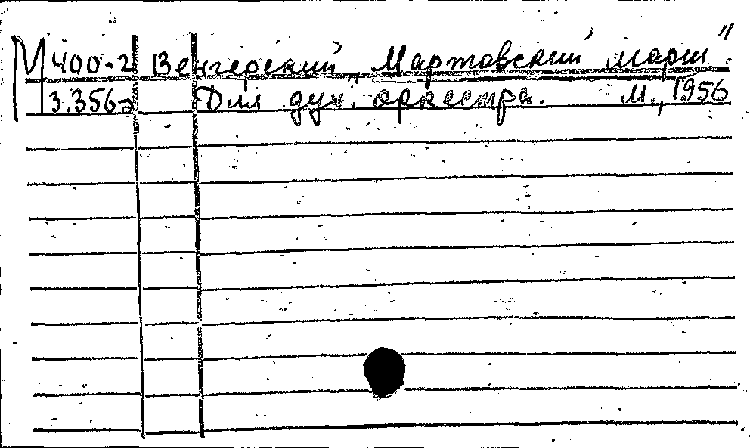 М 400-2 Венгерский „Мартовский марш".
3.356э Для дух. оркестра. М., 1956